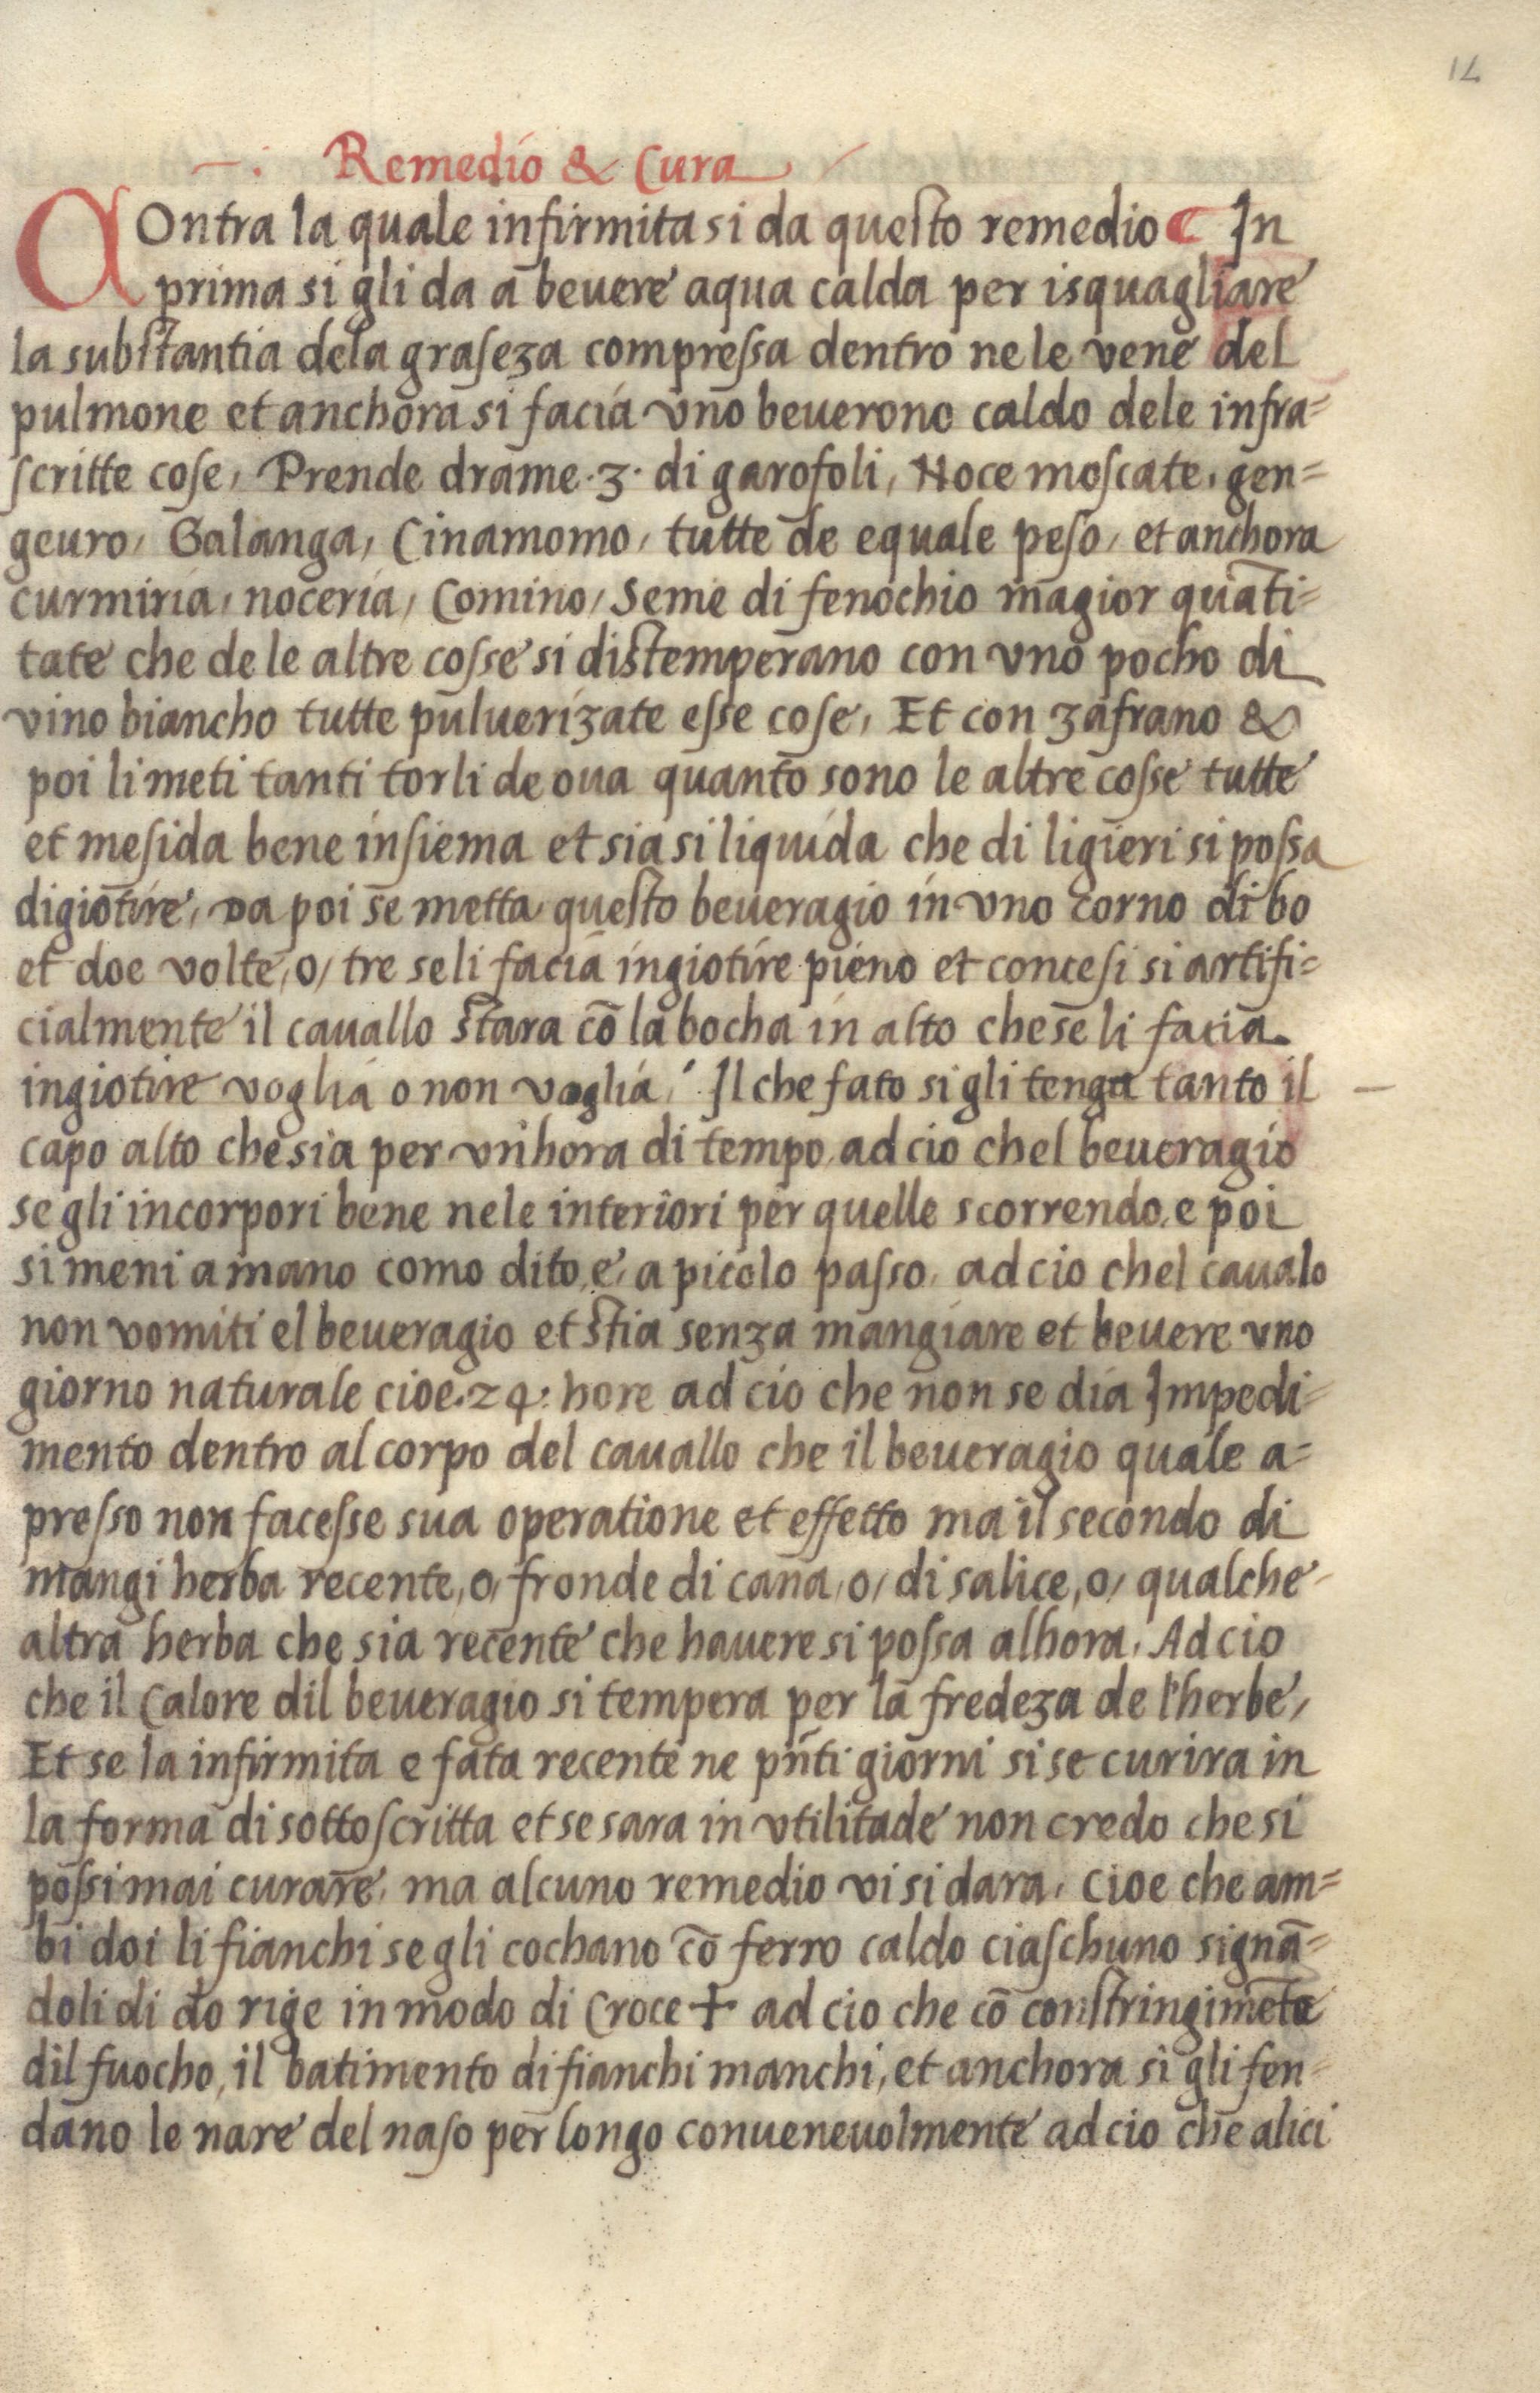 14
—. Remedio & Cura
COntra la quale infirmita si da questo remedio ¶ In
prima si gli da a beuere aqua calda per isquagliare
la substantia dela graseza compressa dentro ne le vene del
pulmone et anchora si facia vno beuerono caldo dele infra=
scritte cose, Prende drame .3. di garofoli, Noce moscate, gen=
geuro, Galanga, Cinamomo, tutte de equale peso, et anchora
curmiria, noceria, Comino, Seme di fenochio magior quāti=
tate che de le altre cosse si distemperano con vno pocho di
vino biancho tutte puluerizate esse cose, Et con zafrano &
poi li meti tanti torli de oua quanto sono le altre cosse tutte
et mesida bene insiema et sia si liquida che di ligieri si possa
digiotire, Da poi se metta questo beueragio in vno corno di bo
et doe volte, o, tre se li facia ingiotire pieno et concesi si artifi=
cialmente il cauallo stara cō la bocha in alto che se li facia
ingiotire voglia o non voglia, Il che fato si gli tenga tanto il —
capo alto che sia per vn hora di tempo, ad cio chel beueragio
se gli incorpori bene nele interiori per quelle scorrendo, e poi
si meni a mano como dito, e, a picolo passo, ad cio chel caualo
non vomiti el beueragio et stia senza mangiare et beuere vno
giorno naturale cioe .24. hore ad cio che non se dia Impedi=
mento dentro al corpo del cauallo che il beueragio quale a=
presso non facesse sua operatione et effetto ma il secondo di
mangi herba recente, o, fronde di cana, o, di salice, o, qualche
altra herba che sia recente che hauere si possa alhora, Ad cio
che il Calore dil beueragio si tempera per la fredeza de l'herbe,
Et se la infirmita e fata recente ne pn̄ti giorni si se curira in
la forma di sottoscritta et se sara in vtilitade non credo che si
possi mai curare, ma alcuno remedio vi si dara, cioe che am=
bi doi li fianchi se gli cochano cō ferro caldo ciaschuno signā=
doli di do rige in modo di Croce + ad cio che cō constringimēto
dil fuocho, il batimento di fianchi manchi, et anchora si gli fen=
dano le nare del naso per longo conueneuolmente ad cio che alici